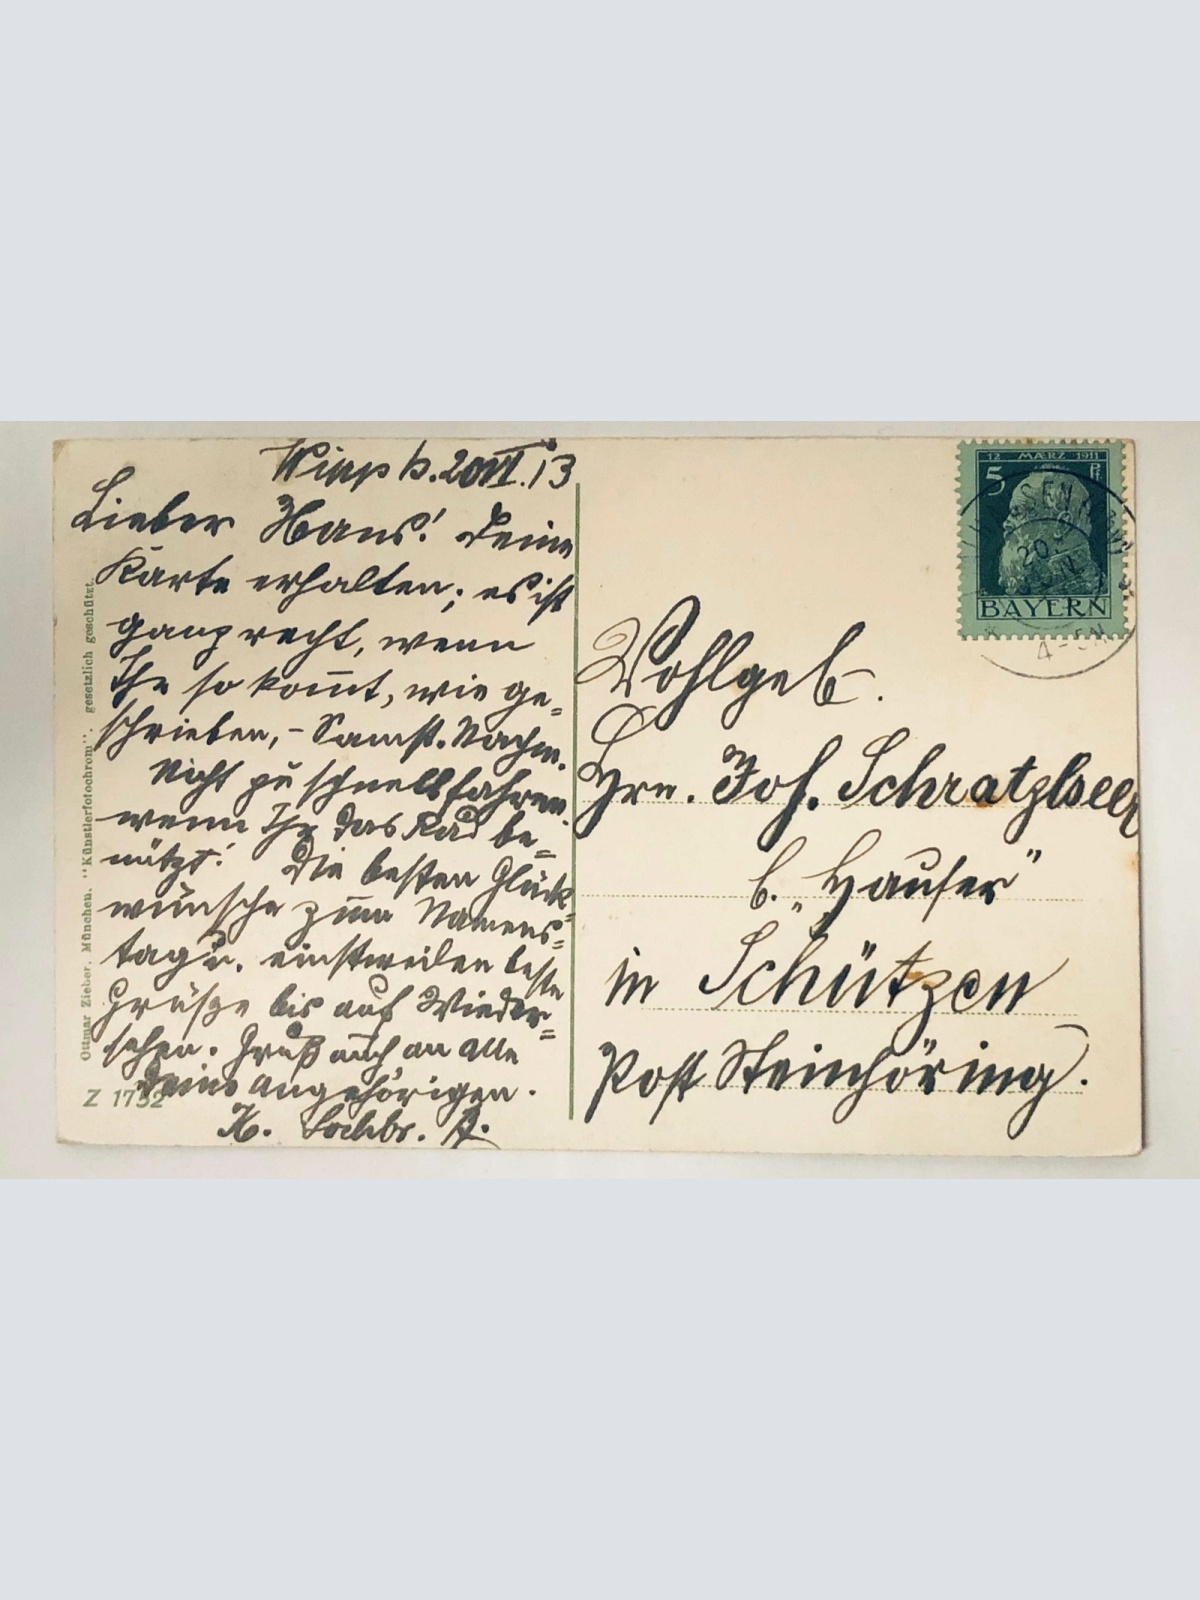 20.VI.13
Lieber Hans! Deine
Karte erhalten; es ist
ganz recht, wenn
Ihr so kom̅t, wie ge=
schrieben, – Samst. Nachm.
Nicht zu schnell fahren
wenn Ihr das Rad be=
nützt! Die besten Glück=
wünsche zum Namens=
tag u. einstweilen beste
Grüße bis auf Wieder=
sehen. Gruß auch an alle
Deine Angehörigen.
Ottmar Zieher, München. "Künstlerfotochrom", gesetzlich geschützt.
Z 1752
12 MÆRZ 1911
5 Pf
BAYERN
20.
Wohlgeb.
Hrn. Joh. Schratzlseer
b. „Hauser"
in Schützen
Post Steinhöring.